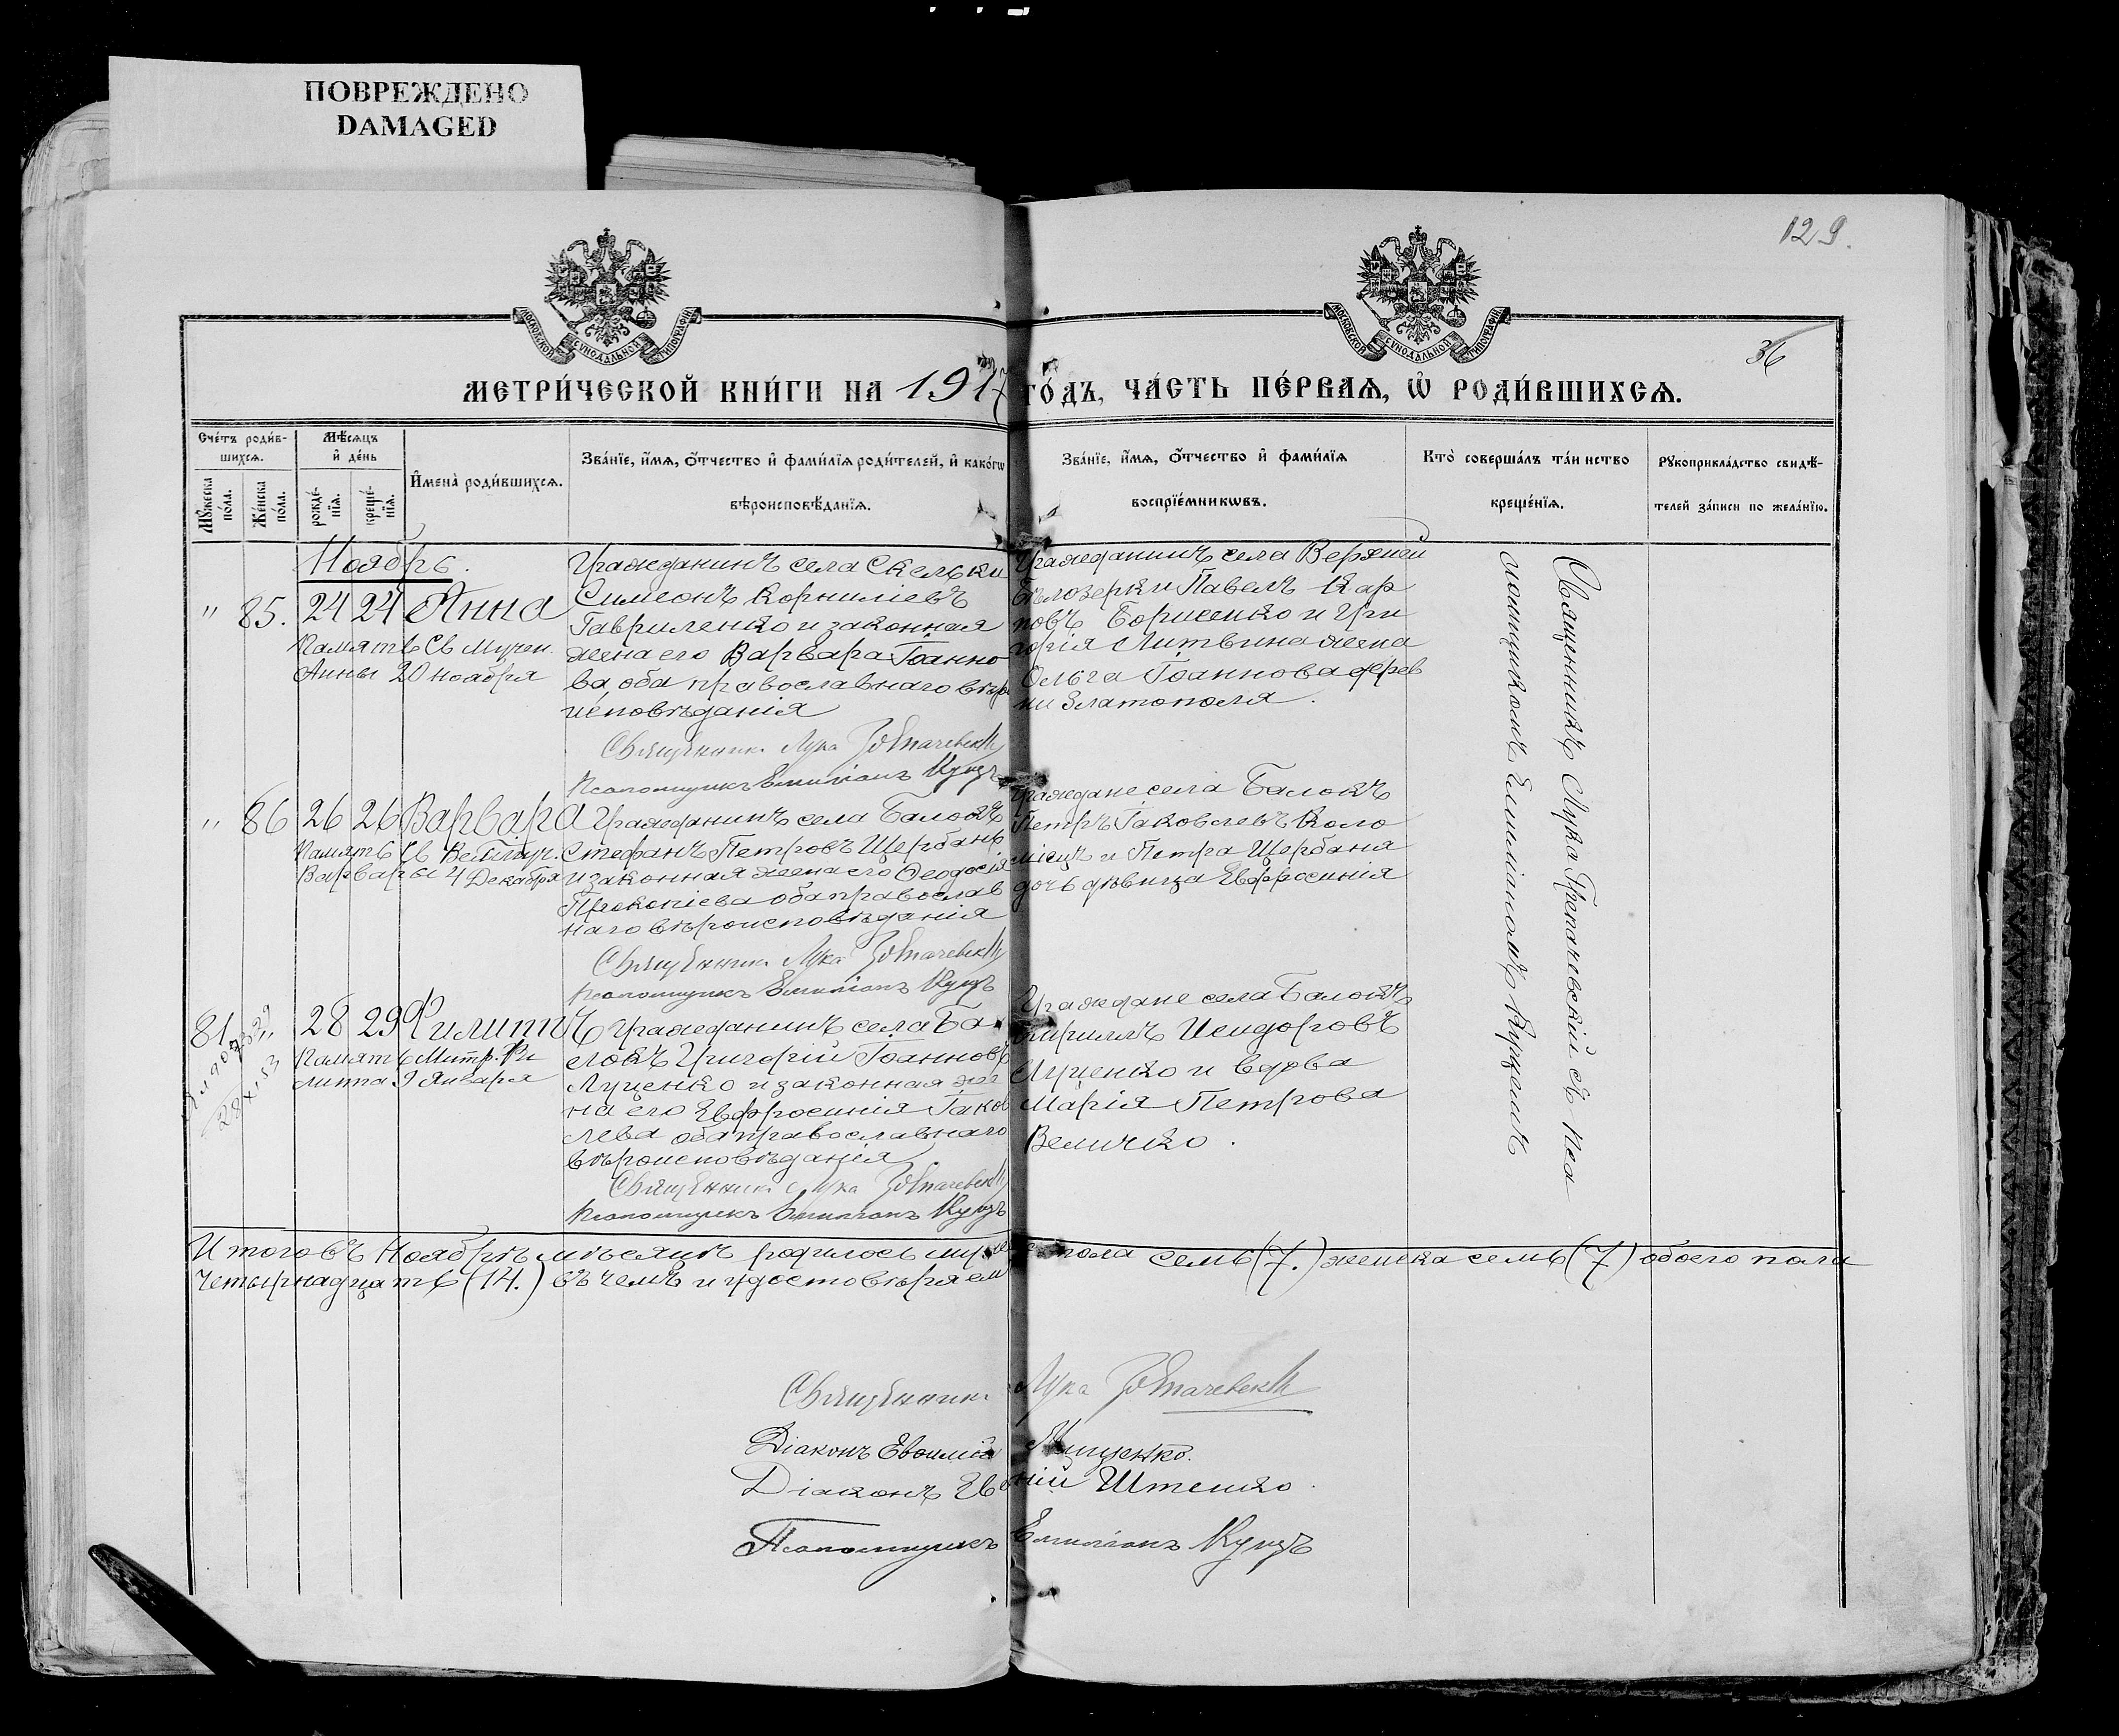 ПОВРЕЖДЕНО
DAMAGED
129.
36
МОСКОВСКОЙ СѴНОДАЛЬНОЙ ТИПОГРАФІИ
МОСКОВСКОЙ СѴНОДАЛЬНОЙ ТИПОГРАФІИ
МЕТРИ́ЧЕСКОЙ КНИ́ГИ НА 1917 ГО́ДЪ, ЧА́СТЬ ПЕ́РВАѦ, Ѽ РОДИ́ВШИХСѦ.
Сче́тъ роди́в-
шихсѧ.
Мꙋ́жеска по́ла.
Же́нска по́ла.
Мѣ́сѧцъ
и҆ де́нь
рожде́-
нїѧ.
креще́-
нїѧ.
И҆мена̀ роди́вшихсѧ.
Зва́нїе, и҆́мѧ, ѻ҆́тчество и҆ фами́лїѧ роди́телей, и҆ како́гѡ
вѣроисповѣ́данїѧ.
Зва́нїе, и҆́мѧ, ѻ҆́тчество и҆ фами́лїѧ
воспрїе́мникѡвъ.
Кто̀ соверша́лъ та́инство
креще́нїѧ.
Рꙋкоприкла́дство свидѣ́-
телей за́писи по жела́нїю.
Ноябрь.
" 85. 24 24 Анна
Память Св Мучен.
Анны 20 ноября
Гражданинъ села Скельки
Симеонъ Корнилiевъ
Гавриленко и законная
жена его Варвара Iоанно
ва оба православнаго вѣро
исповѣданiя
Священникъ Лука
Псаломщикъ Емилианъ Куцъ
Гражданинъ села Верхней
Бѣлозерки Павелъ Кар
повъ Борисенко и Гри
горiя Литвина жена
Ольга Iоаннова дерев
ни Златополя.
Священникъ Лука Грепачевскiй съ Пса
ломщикомъ Емилiаномъ Куцемъ
" 86 26 26 Варвара
Память Св Великмуч.
Варвары 4 Декабря
Гражданинъ села Балокъ
Стефанъ Петровъ Щербань
и законная жена его Ѳеодосiя
Прокопiева оба православ
наго вѣроисповѣданiя
Священникъ Лука
Псаломщикъ Емилианъ Куцъ
Граждане села Балокъ
Петръ Iаковлевъ Коло
мiецъ и Петра Щербаня
дочь дѣвица Евфросинiя
81 " 28 29 Филиппъ
Память Митр. Фи
липпа 9 Января
Гражданинъ села Ба
локъ Григорiй Iоанновъ
Луценко и законная же
на его Евфросинiя Iаков
лева оба православнаго
вѣроисповѣданiя
Священникъ Лука
Псаломщикъ Емилианъ Куцъ
Граждане села Балокъ
Кириллъ Исидоровъ
Луценко и вдова
Марiя Петрова
Величко.
Итого въ Ноябрѣ мѣсяцѣ родилось муже пола семь (7.) женска семь (7) обоего пола
четырнадцать (14.) въ чемъ и удостовѣряем
Священникъ Лука
Дiаконъ Евѳимiй
Дiаконъ Штенко.
Псаломщикъ Емилианъ Куцъ